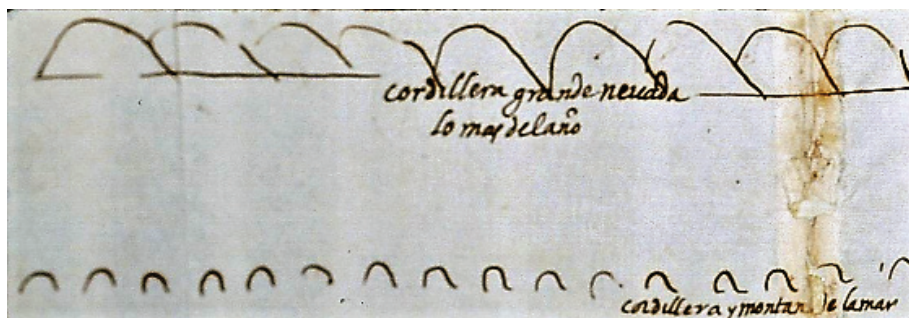 cordillera grande nevada
lo mas del año
cordillera y montan de la mar